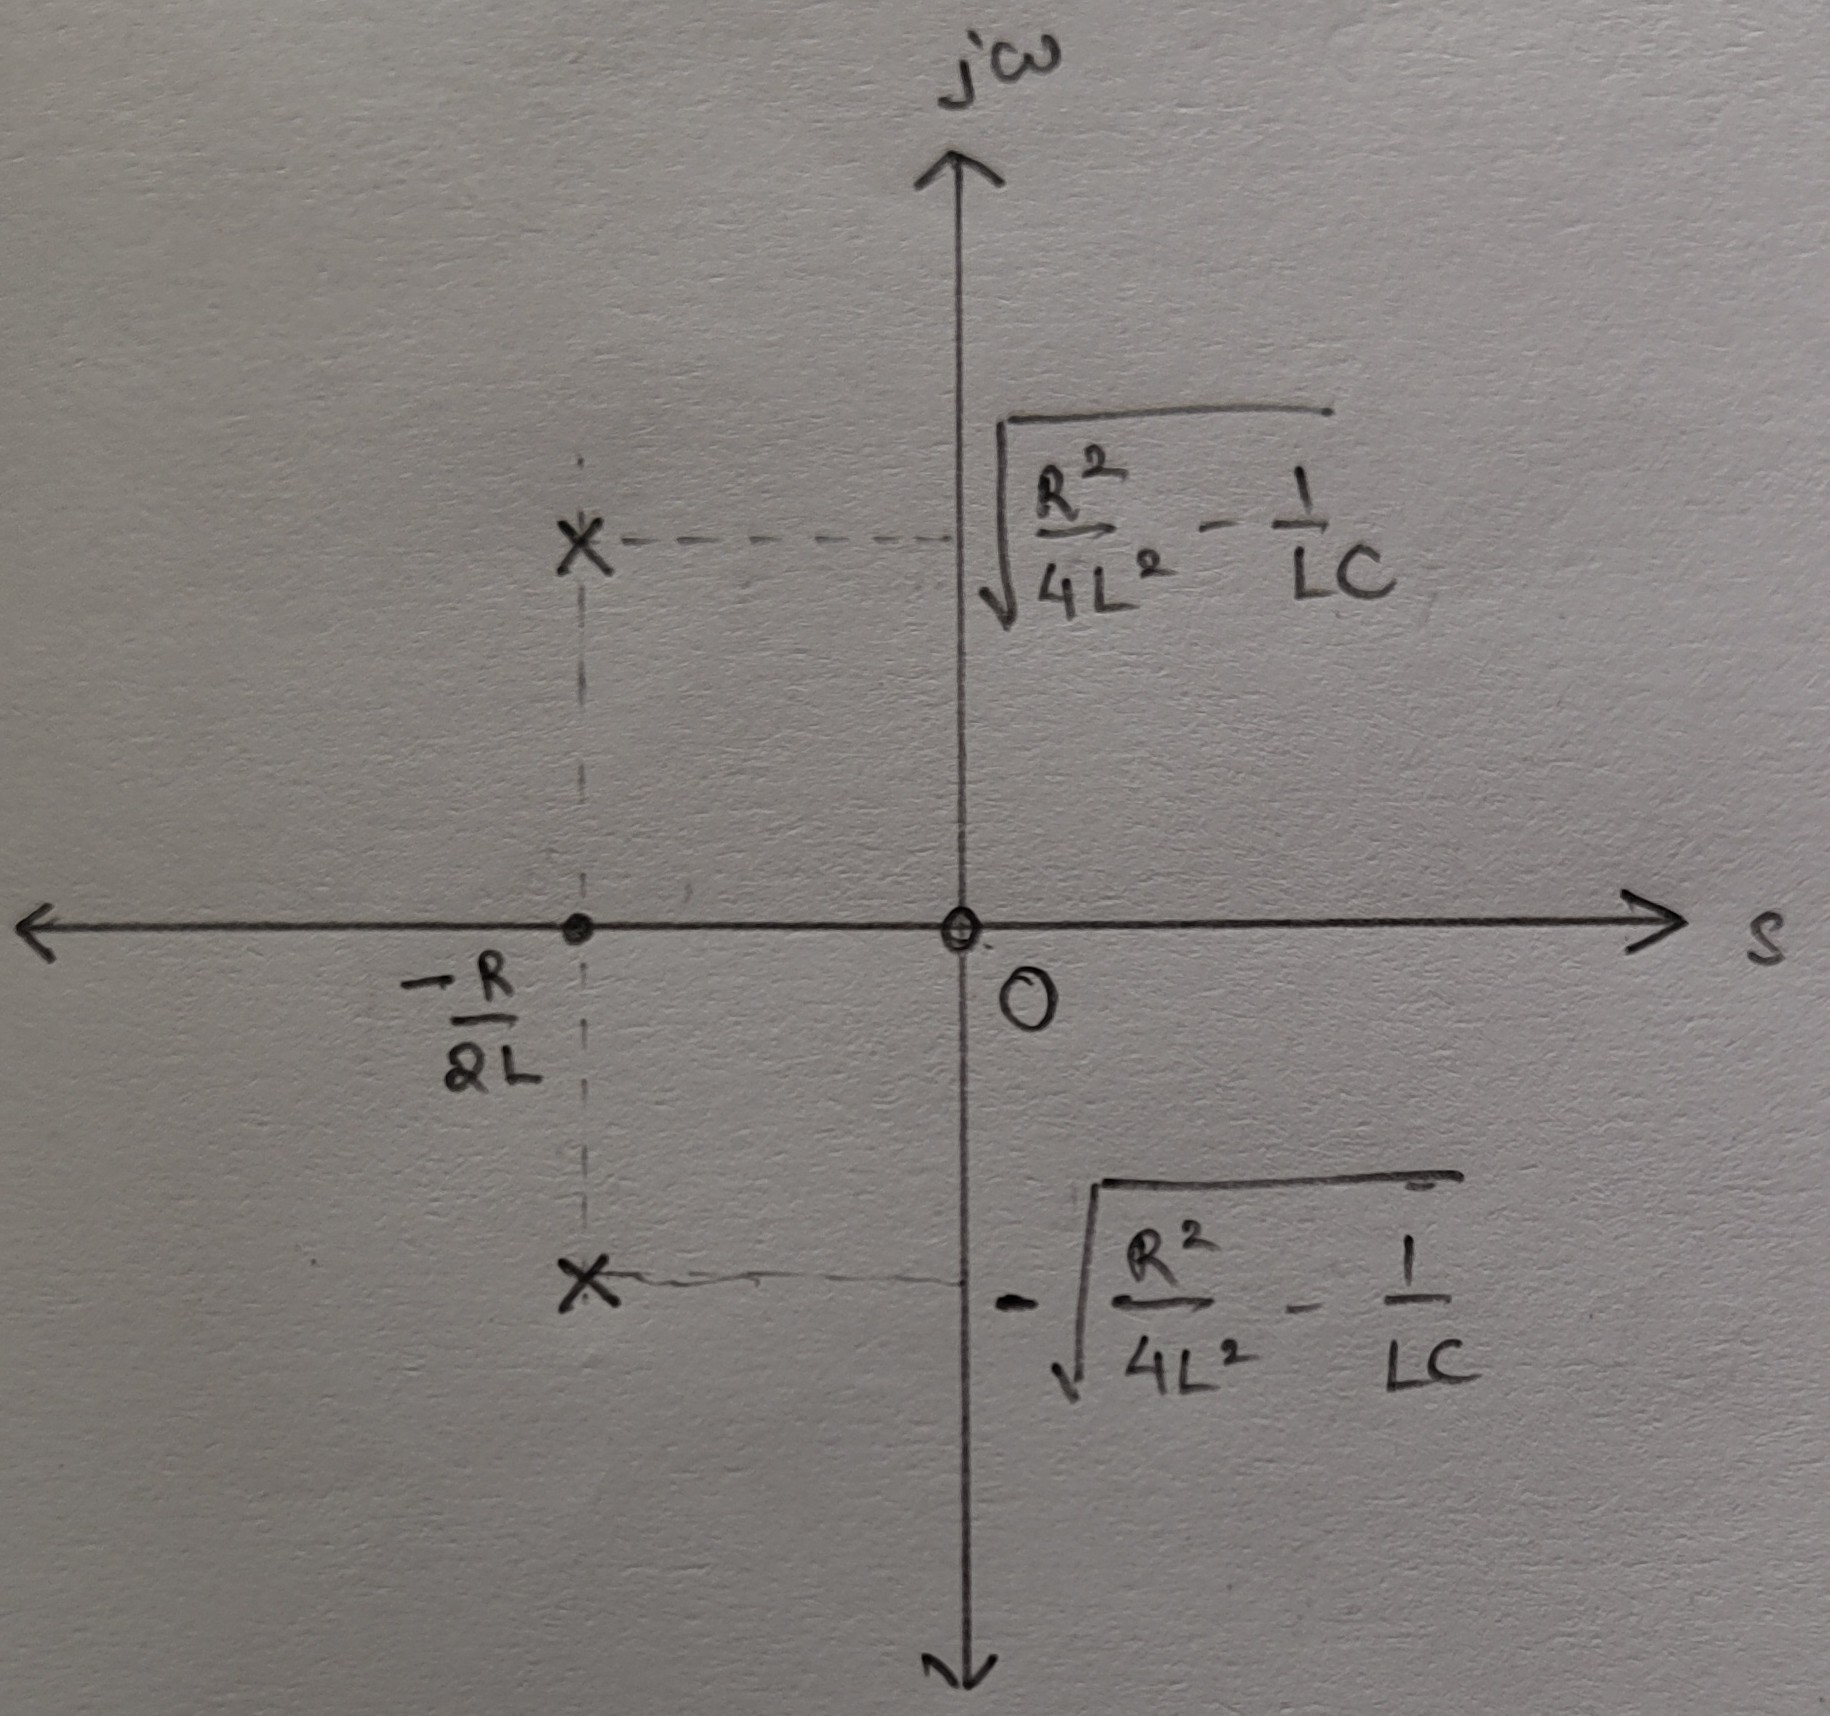 jω
√(R²/4L² - 1/LC)
X
S
-R/2L
O
X
-√(R²/4L² - 1/LC)